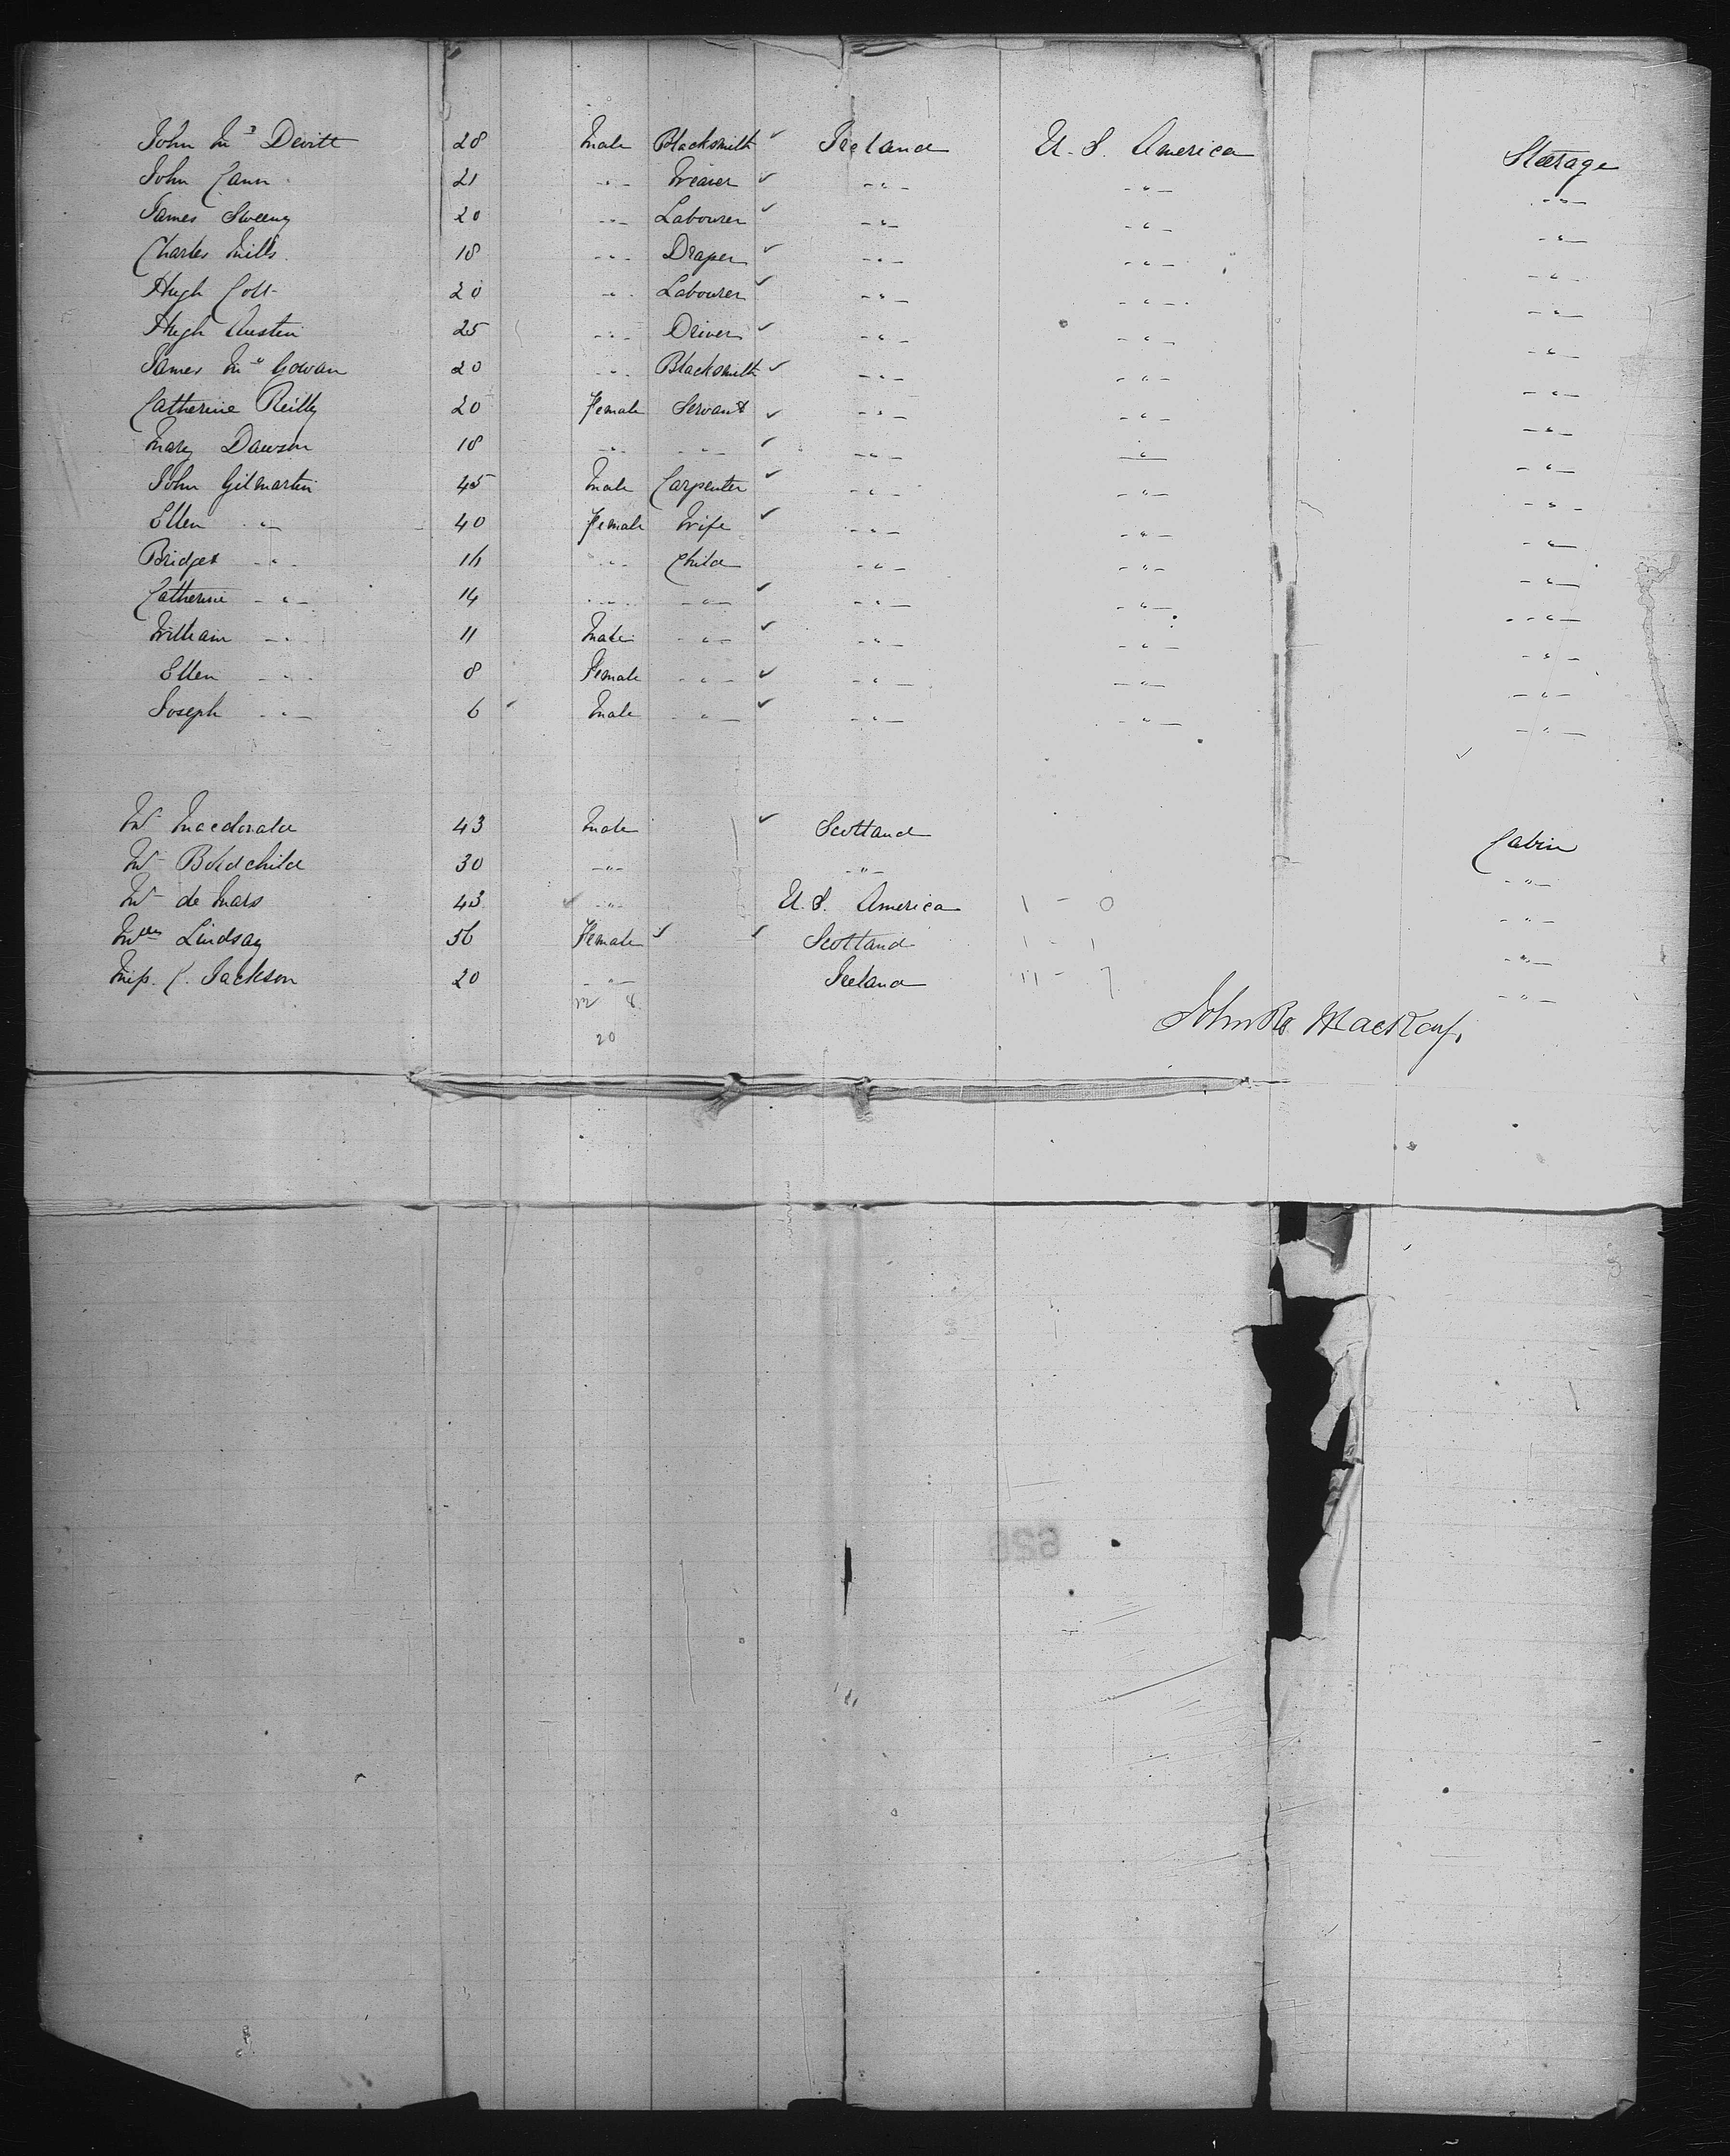 John Mc Devitt 28 Male Blacksmith ✓ Ireland U. S. America Steerage
John Cann 21 -"- Weaver ✓ -"- -"- -"-
James Sweeny 20 -"- Labourer ✓ -"- -"- -"-
Charles Mills 18 -"- Draper ✓ -"- -"- -"-
Hugh Coll 20 -"- Labourer ✓ -"- -"- -"-
Hugh Austin 25 -"- Driver ✓ -"- -"- -"-
James Mc Gowan 20 -"- Blacksmith ✓ -"- -"- -"-
Catherine Reilly 20 Female Servant ✓ -"- -"- -"-
Mary Dawson 18 -"- -"- ✓ -"- -"- -"-
John Gilmartin 45 Male Carpenter ✓ -"- -"- -"-
Ellen -"- 40 Female Wife ✓ -"- -"- -"-
Bridget -"- 16 -"- Child -"- -"- -"-
Catherine -"- 14 -"- -"- ✓ -"- -"- -"-
William -"- 11 Male -"- ✓ -"- -"- -"-
Ellen -"- 8 Female -"- ✓ -"- -"- -"-
Joseph -"- 6 Male -"- ✓ -"- -"- -"-
Mr Macdonald 43 Male ✓ Scotland Cabin
Mr Boldchild 30 -"- -"- -"-
Mr de Mars 43 ✓ -"- U. S. America 1 - 0 -"-
Mrs Lindsay 56 Female ✓ ✓ Scotland 1 - 1 -"-
Miss C. Jackson 20 -"- Ireland 11 - 7 -"-
12 8
20
John Mackay.